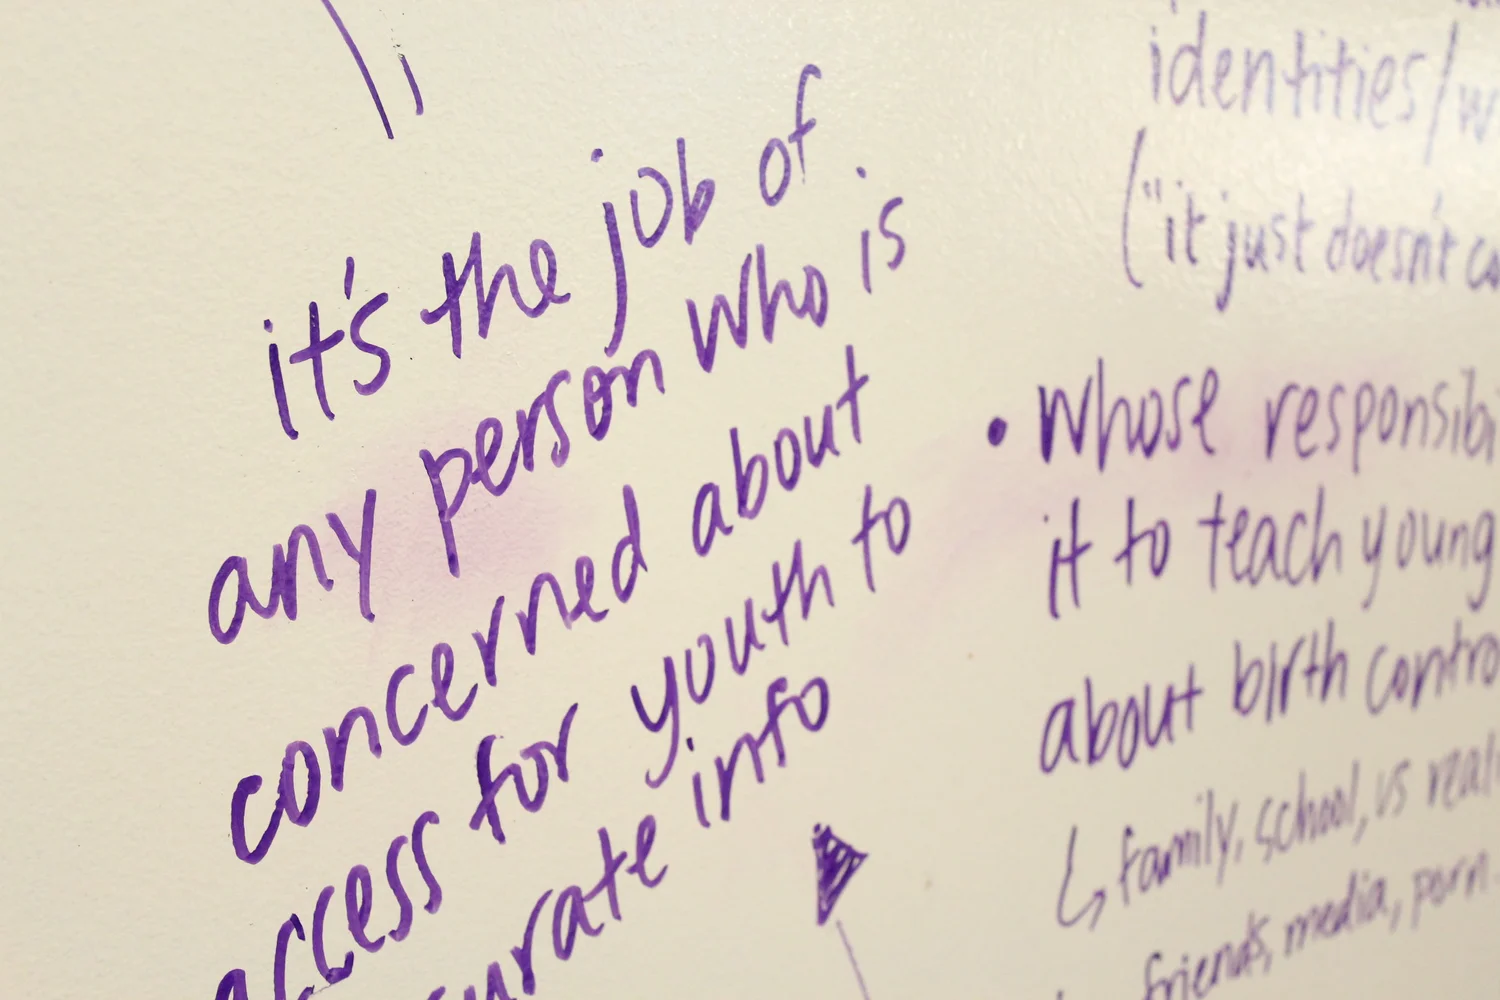 it's the job of
any person who is
concerned about
access for youth to
info
identities/w
("it just doesn't co
• whose responsibi
it to teach young
about birth contro
↳ family, school, vs real
friends, media, porn